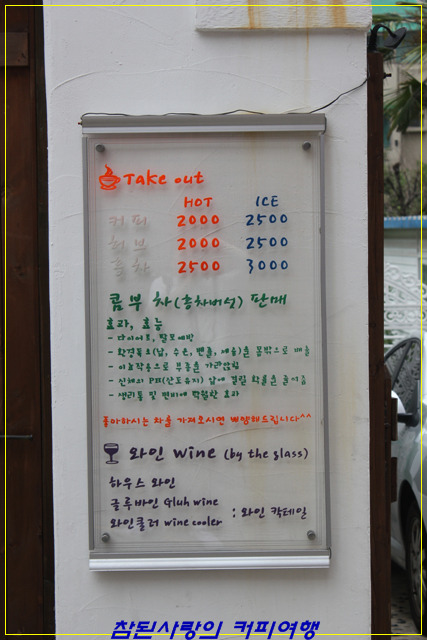 Take out
HOT ICE
커피 2000 2500
허브 2000 2500
홍차 2500 3000
콤부차(홍차버섯) 판매
효과, 효능
- 다이어트, 탈모예방
- 환경독소(납, 수은, 벤졸, 제슘)을 몸밖으로 배출
- 이효작용으로 부종을 가라앉힘
- 신체의 PH(산도유지) 암에 걸릴 확률을 줄여줌
- 생리통 및 변비에 탁월한 효과
좋아하시는 차를 가져오시면 삐암해드립니다^^
와인 wine (by the glass)
하우스 와인
글루바인 Gluh wine
와인쿨러 wine cooler : 와인 칵테일
참된사랑의 커피여행